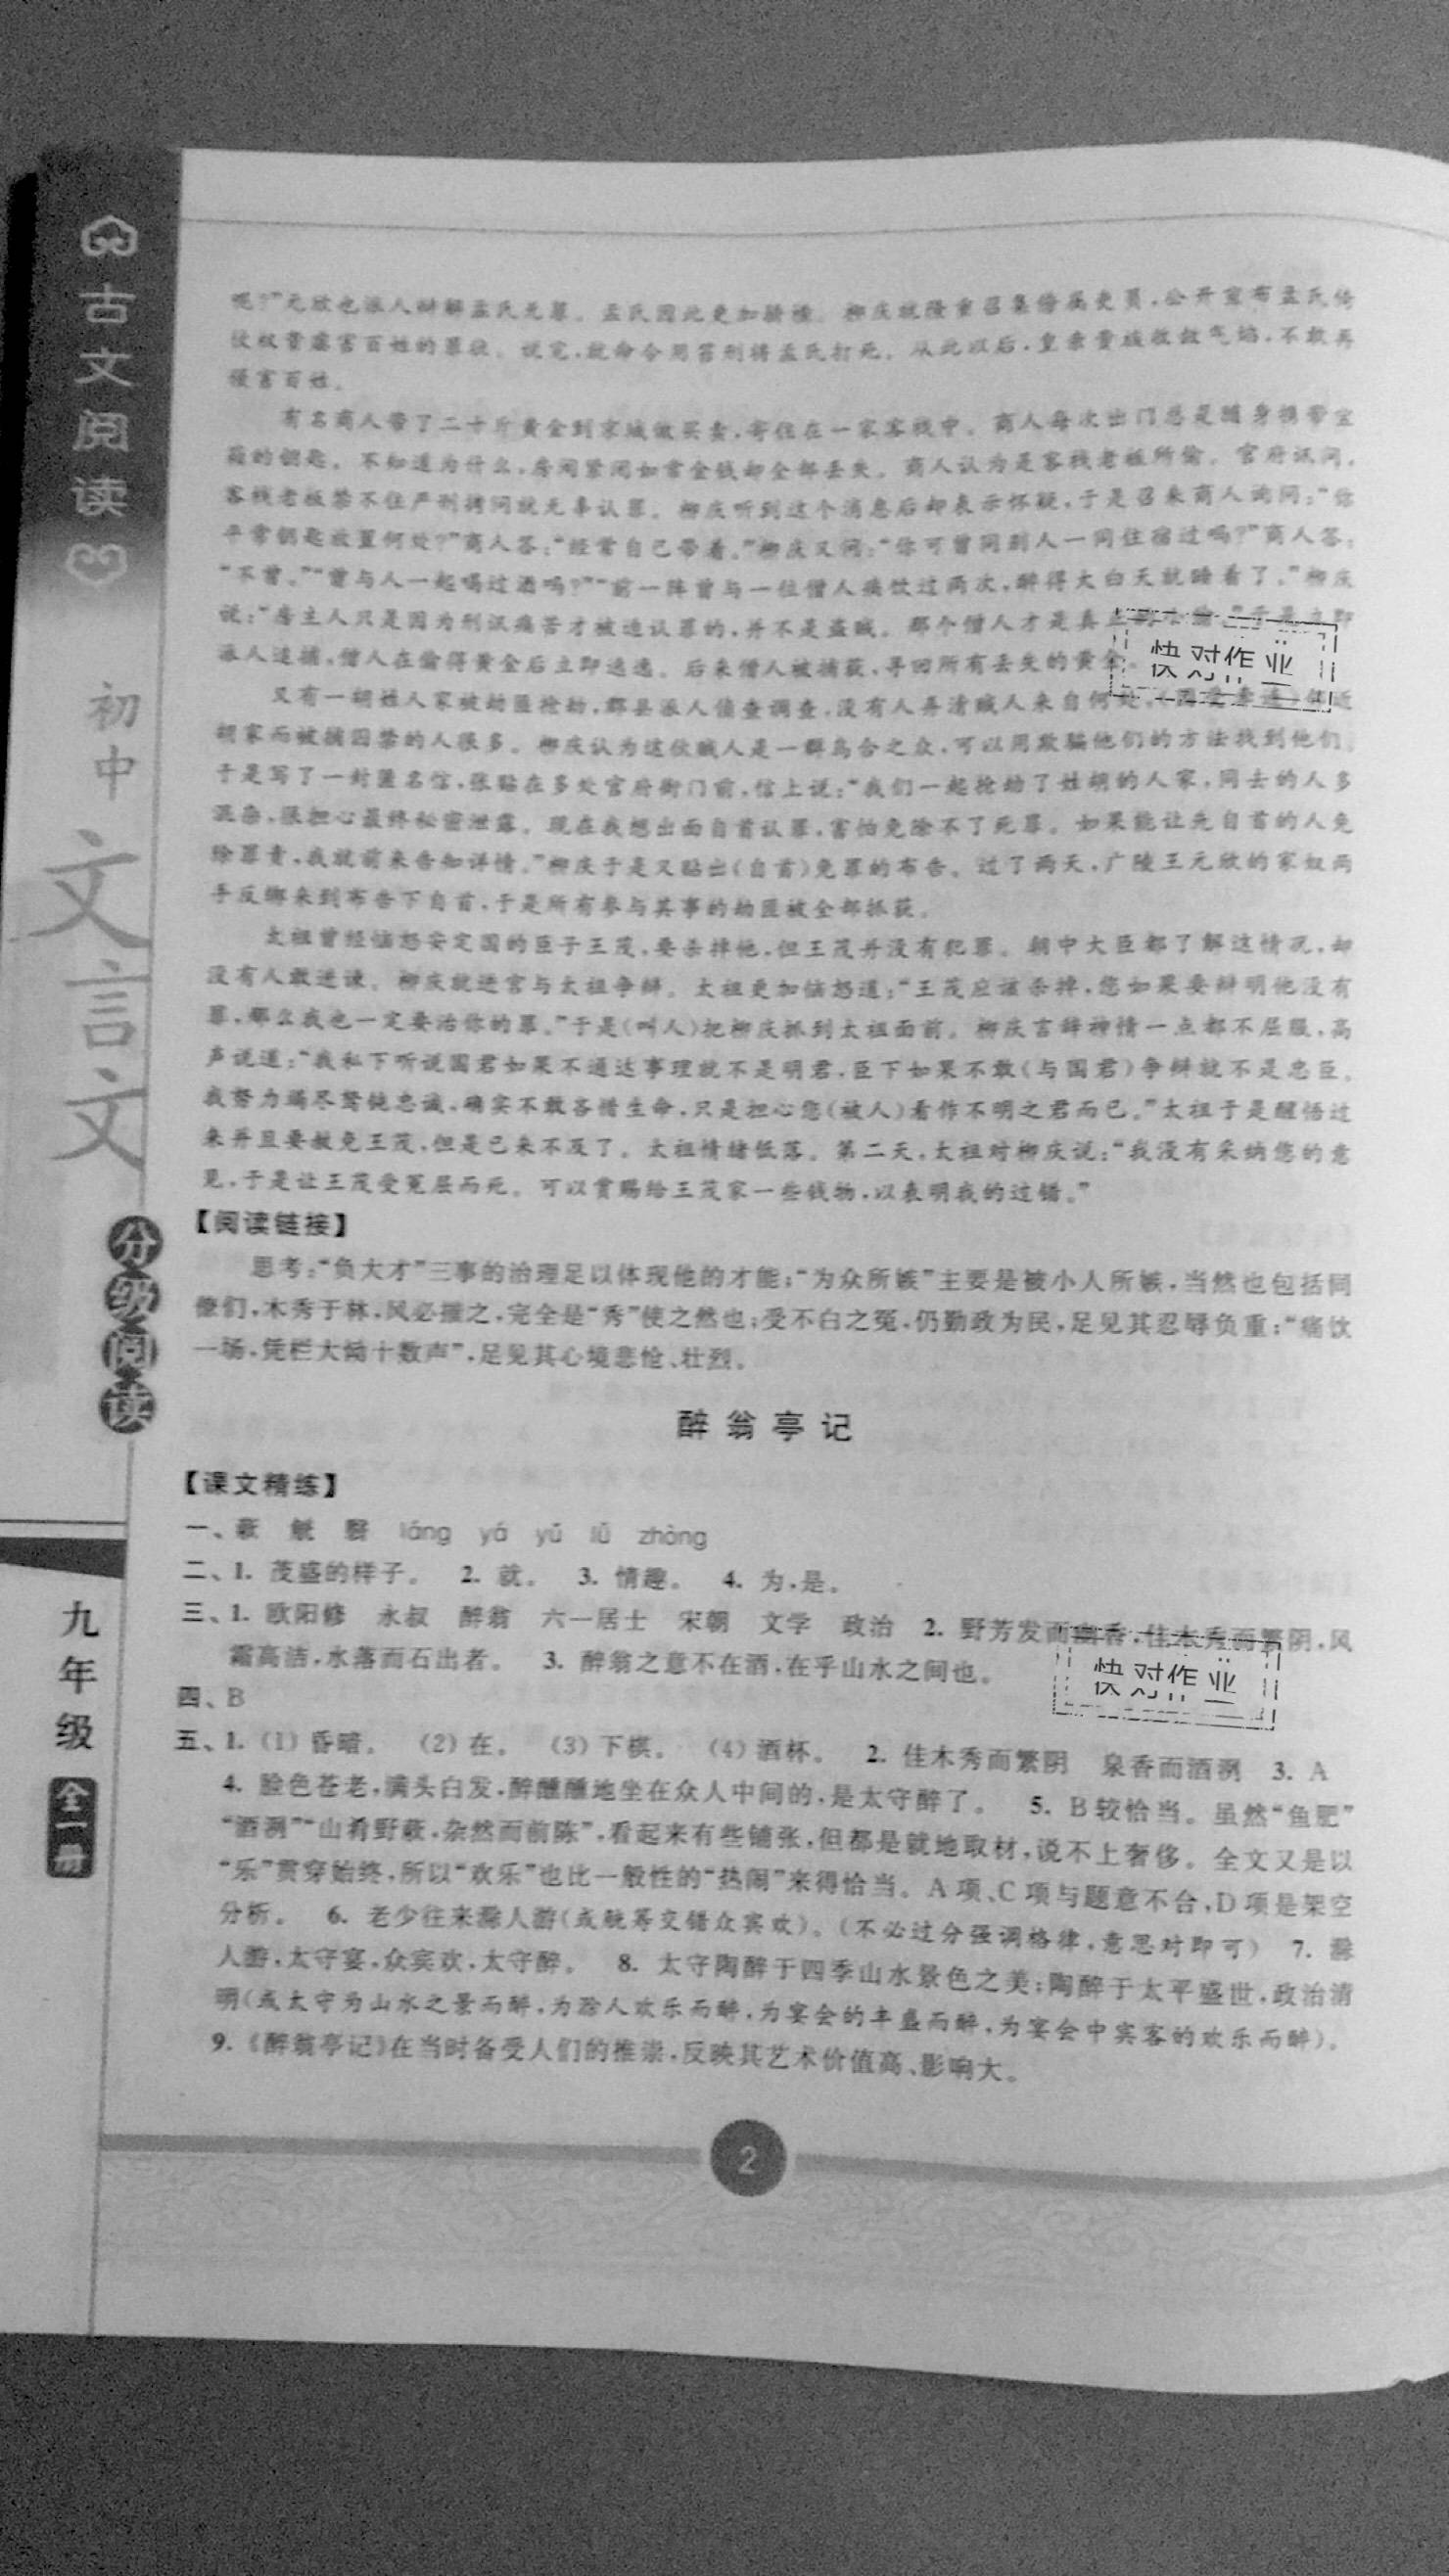 古文阅读
初中
文言文
分级阅读
九年级
全一册
呢?”元欣也派人辩解孟氏无罪。孟氏因此更加骄横。柳庆就隆重召集僚属吏员,公开宣布孟氏倚
仗权贵虐害百姓的罪状。说完,就命令用笞刑将孟氏打死。从此以后,皇亲贵族收敛气焰,不敢再
侵害百姓。
有名商人带了二十斤黄金到京城做买卖,寄住在一家客栈中。商人每次出门总是随身携带宝
箱的钥匙。不知道为什么,房间紧闭如常金钱却全部丢失。商人认为是客栈老板所偷。官府讯问,
客栈老板禁不住严刑拷问就无辜认罪。柳庆听到这个消息后却表示怀疑,于是召来商人询问:“你
平常钥匙放置何处?”商人答:“经常自己带着。”柳庆又问:“你可曾同别人一同住宿过吗?”商人答:
“不曾。”“曾与人一起喝过酒吗?”“前一阵曾与一位僧人痛饮过两次,醉得大白天就睡着了。”柳庆
说:“店主人只是因为刑讯痛苦才被迫认罪的,并不是盗贼。那个僧人才是真正
派人追捕,僧人在偷得黄金后立即逃逸。后来僧人被捕获,寻回所有丢失的黄金。
快对作业
又有一胡姓人家被劫匪抢劫,郡县派人侦查调查,没有人弄清贼人来自何处,邻近
胡家而被捕囚禁的人很多。柳庆认为这伙贼人是一群乌合之众,可以用欺骗他们的方法找到他们。
于是写了一封匿名信,张贴在多处官府衙门前,信上说:“我们一起抢劫了姓胡的人家,同去的人多
混杂,很担心最终秘密泄露。现在我想出面自首认罪,害怕免除不了死罪。如果能让先自首的人免
除罪责,我就前来告知详情。”柳庆于是又贴出(自首)免罪的布告。过了两天,广陵王元欣的家奴两
手反绑来到布告下自首,于是所有参与其事的劫匪被全部抓获。
太祖曾经恼怒安定国的臣子王茂,要杀掉他,但王茂并没有犯罪。朝中大臣都了解这情况,却
没有人敢进谏。柳庆就进宫与太祖争辩。太祖更加恼怒道:“王茂应该杀掉,您如果要辩明他没有
罪,那么我也一定要治你的罪。”于是(叫人)把柳庆抓到太祖面前。柳庆言辞神情一点都不屈服,高
声说道:“我私下听说国君如果不通达事理就不是明君,臣下如果不敢(与国君)争辩就不是忠臣。
我努力竭尽驽钝忠诚,确实不敢吝惜生命,只是担心您(被人)看作不明之君而已。”太祖于是醒悟过
来并且要赦免王茂,但是已来不及了。太祖情绪低落。第二天,太祖对柳庆说:“我没有采纳您的意
见,于是让王茂受冤屈而死。可以赏赐给王茂家一些钱物,以表明我的过错。”
【阅读链接】
思考:“负大才”三事的治理足以体现他的才能;“为众所嫉”主要是被小人所嫉,当然也包括同
僚们,木秀于林,风必摧之,完全是“秀”使之然也;受不白之冤,仍勤政为民,足见其忍辱负重;“痛饮
一场,凭栏大恸十数声”,足见其心境悲怆、壮烈。
醉翁亭记
【课文精练】
一、蔌 觥 翳 láng yá yǔ lǚ zhòng
二、1. 茂盛的样子。 2. 就。 3. 情趣。 4. 为,是。
三、1. 欧阳修 永叔 醉翁 六一居士 宋朝 文学 政治 2. 野芳发而幽香,佳木秀而繁阴,风
霜高洁,水落而石出者。 3. 醉翁之意不在酒,在乎山水之间也。
快对作业
四、B
五、1. (1) 昏暗。 (2) 在。 (3) 下棋。 (4) 酒杯。 2. 佳木秀而繁阴 泉香而酒洌 3. A
4. 脸色苍老,满头白发,醉醺醺地坐在众人中间的,是太守醉了。 5. B较恰当。虽然“鱼肥”
“酒洌”“山肴野蔌,杂然而前陈”,看起来有些铺张,但都是就地取材,说不上奢侈。全文又是以
“乐”贯穿始终,所以“欢乐”也比一般性的“热闹”来得恰当。A项、C项与题意不合,D项是架空
分析。 6. 老少往来滁人游(或觥筹交错众宾欢)。(不必过分强调格律,意思对即可) 7. 滁
人游,太守宴,众宾欢,太守醉。 8. 太守陶醉于四季山水景色之美;陶醉于太平盛世,政治清
明(或太守为山水之景而醉,为滁人欢乐而醉,为宴会的丰盛而醉,为宴会中宾客的欢乐而醉)。
9.《醉翁亭记》在当时备受人们的推崇,反映其艺术价值高、影响大。
2